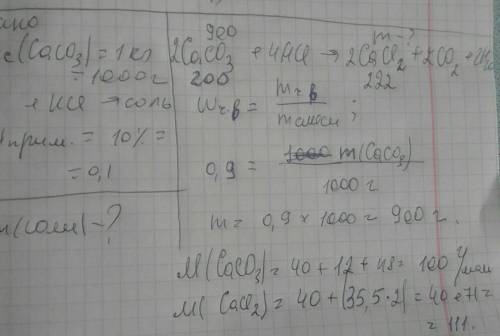 ано
(CaCO₃) = 1 кг
= 1000 г
+ HCl → соль
прим. = 10% =
= 0,1
m(соли) - ?
900 m - ?
2CaCO₃ + 4HCl → 2CaCl₂ + 2CO₂ + 2H₂O
200 222
Wч.в = mч.в / mсмеси ;
0,9 = m(CaCO₃) / 1000 г
m = 0,9 × 1000 = 900 г.
M(CaCO₃) = 40 + 12 + 48 = 100 г/моль
M(CaCl₂) = 40 + (35,5 · 2) = 40 + 71 =
= 111.